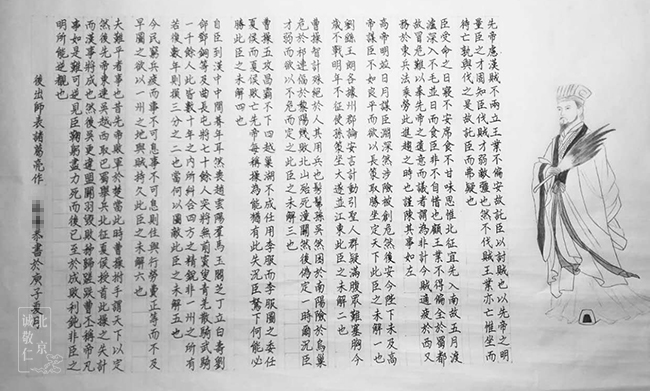 先帝慮漢賊不兩立王業不偏安故託臣以討賊也以先帝之明
量臣之才固知臣伐賊才弱敵彊也然不伐賊王業亦亡惟坐而
待亡孰與伐之是故託臣而弗疑也
臣受命之日寢不安席食不甘味思惟北征宜先入南故五月渡
瀘深入不毛並日而食臣非不自惜也顧王業不得偏全於蜀都
故冒危難以奉先帝之遺意而議者謂為非計今賊適疲於西又
務於東兵法乘勞此進趨之時也謹陳其事如左
高帝明竝日月謀臣淵深然涉險被創危然後安今陛下未及高
帝謀臣不如良平而欲以長策取勝坐定天下此臣之未解一也
劉繇王朗各據州郡論安言計動引聖人群疑滿腹眾難塞胸今
歲不戰明年不征使孫策坐大遂並江東此臣之未解二也
曹操智計殊絕於人其用兵也髣髴孫吳然困於南陽險於烏巢
危於祁連偪於黎陽幾敗北山殆死潼關然後偽定一時爾況臣
才弱而欲以不危而定之此臣之未解三也
曹操五攻昌霸不下四越巢湖不成任用李服而李服圖之委任
夏侯而夏侯敗亡先帝每稱操為能猶有此失況臣駑下何能必
勝此臣之未解四也
自臣到漢中中間朞年耳然喪趙雲陽羣馬玉閻芝丁立白壽劉
郃鄧銅等及曲長屯將七十餘人突將無前賨叟青羌散騎武騎
一千餘人此皆數十年之內所糾合四方之精銳非一州之所有
若復數年則損三分之二也當何以圖敵此臣之未解五也
今民窮兵疲而事不可息事不可息則住與行勞費正等而不及
早圖之欲以一州之地與賊持久此臣之未解六也
夫難平者事也昔先帝敗軍於楚當此時曹操拊手謂天下以定
然後先帝東連吳越西取巴蜀舉兵北征夏侯授首此操之失計
而漢事將成也然後吳更違盟關羽毀敗秭歸蹉跌曹丕稱帝凡
事如是難可逆見臣鞠躬盡力死而後已至於成敗利鈍非臣之
明所能逆覩也
後出師表諸葛亮作
恭書於庚子夏月
北京
誠敬仁